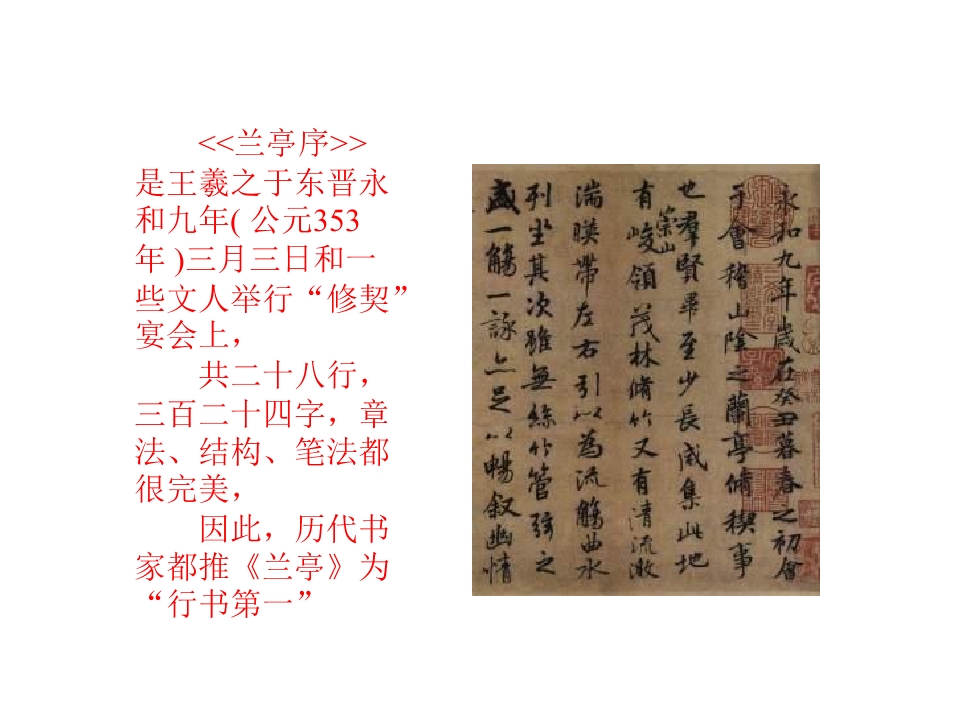 <<兰亭序>>
是王羲之于东晋永
和九年( 公元353
年 )三月三日和一
些文人举行“修契”
宴会上，
共二十八行，
三百二十四字，章
法、结构、笔法都
很完美，
因此，历代书
家都推《兰亭》为
“行书第一”
永和九年歲在癸丑暮春之初會
于會稽山陰之蘭亭脩稧事
也羣賢畢至少長咸集此地
有崇山峻領茂林脩竹又有清流激
湍暎帶左右引以為流觴曲水
列坐其次雖無絲竹管弦之
盛一觴一詠亦足以暢叙幽情